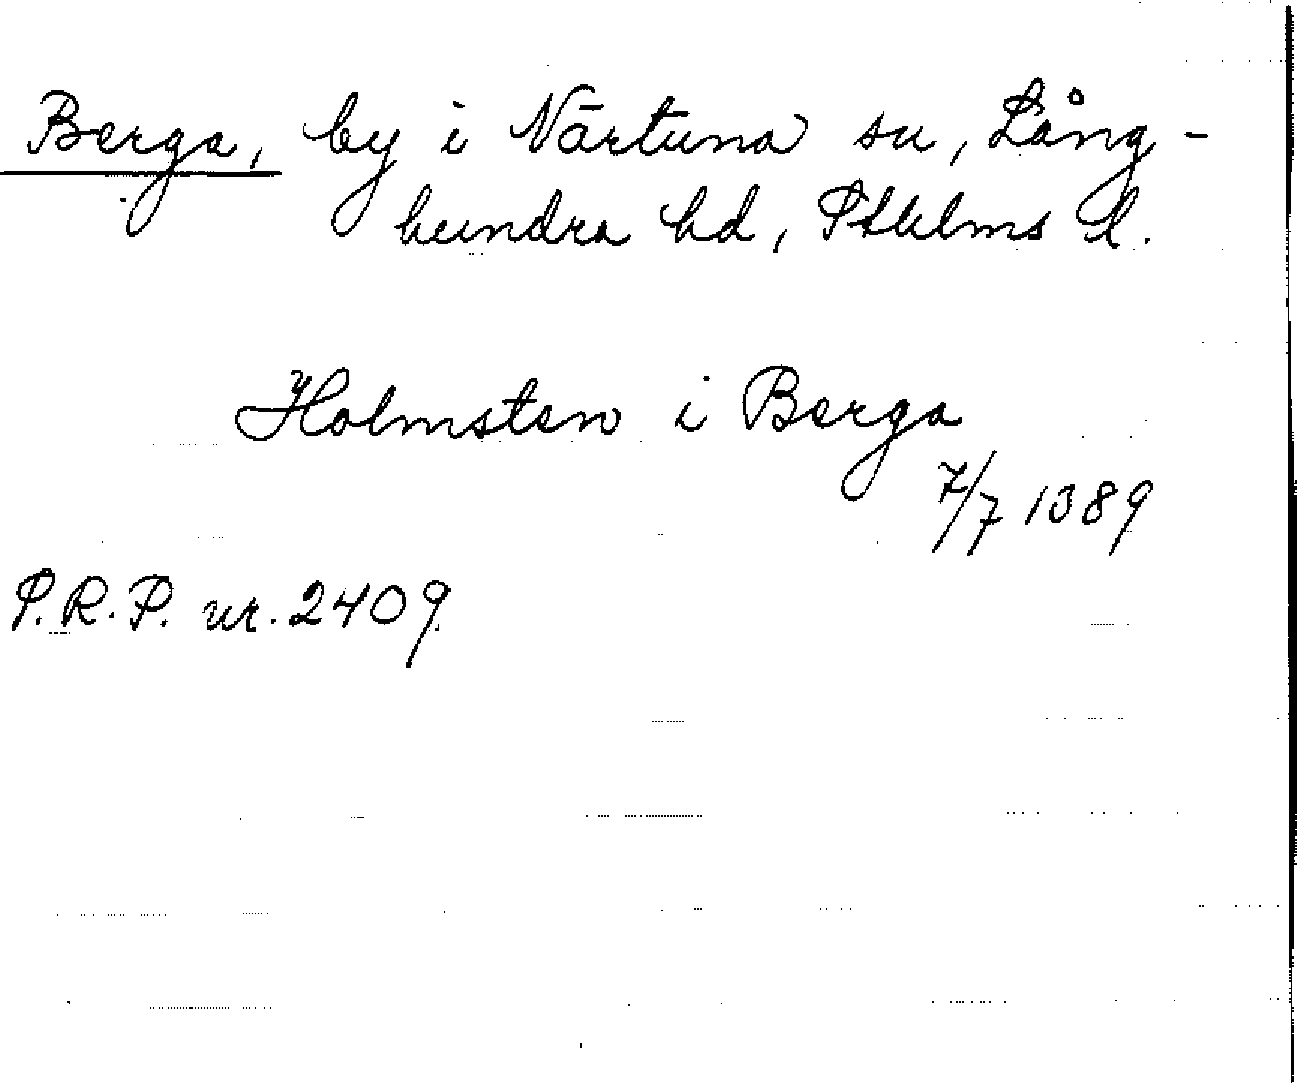 Berga, by i Närtuna sn, Lång-
hundra hd, Sthlms l.
Holmsten i Berga
7/7 1389
S.R.P. nr. 2409